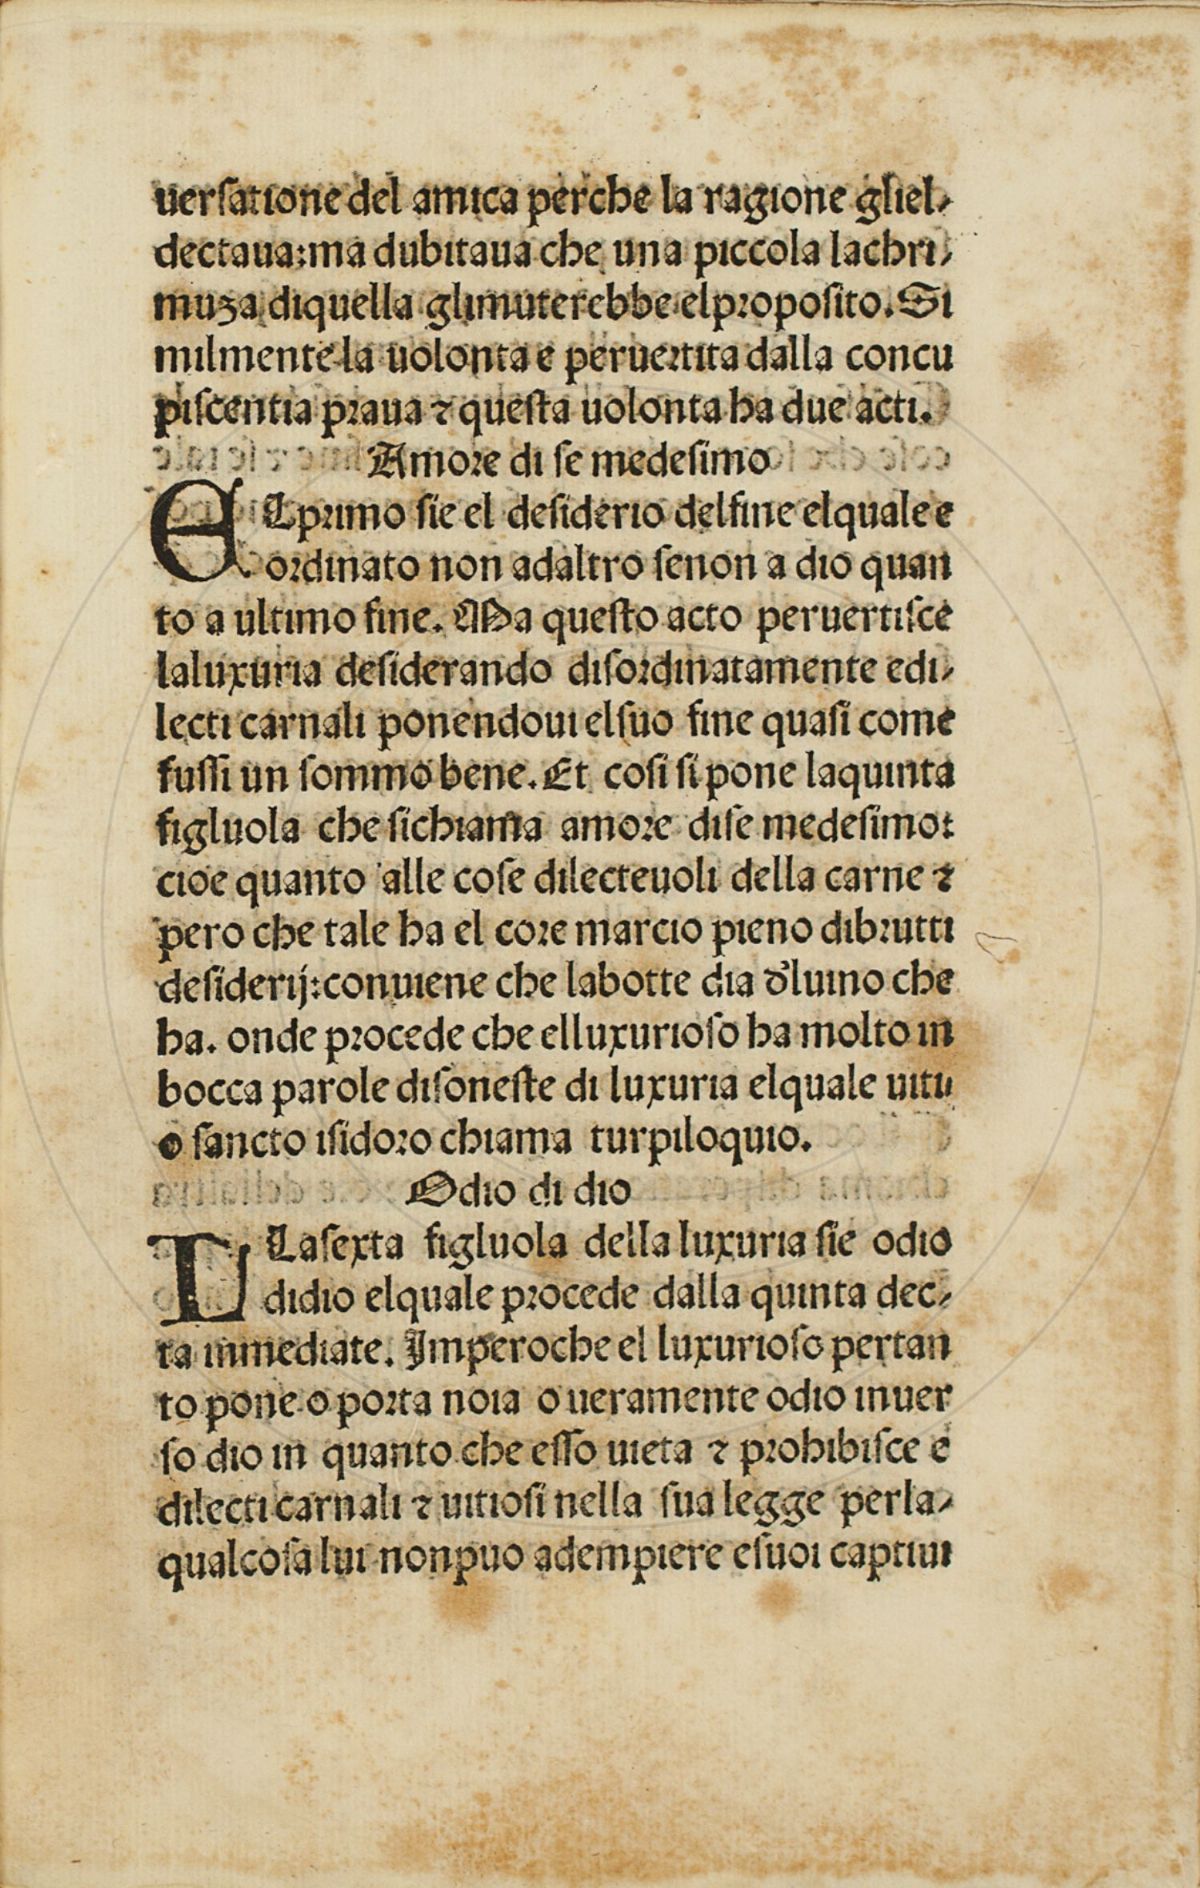 uerſatione del amica perche la ragione gliel-
dectaua:ma dubitaua che una piccola lachri-
muza diquella glimuterebbe elpropoſito. Si
milmente la uolonta e peruertita dalla concu
piſcentia praua ⁊ queſta uolonta ha due acti.
Amore di ſe medeſimo
ELprimo ſie el deſiderio delfine elquale e
ordinato non adaltro ſenon a dio quan
to a ultimo fine. Ma queſto acto peruertiſce
laluxuria deſiderando diſordinatamente edi-
lecti carnali ponendoui elſuo fine quaſi come
fuſſi un ſommo bene. Et coſi ſi pone laquinta
figluola che ſichiama amore diſe medeſimo:
cioe quanto alle coſe dilecteuoli della carne ⁊
pero che tale ha el core marcio pieno dibrutti
deſiderij:conuiene che labotte dia d̓luino che
ha. onde procede che elluxurioſo ha molto in
bocca parole diſoneſte di luxuria elquale uiti
o ſancto iſidoro chiama turpiloquio.
Odio di dio
LLaſexta figluola della luxuria ſie odio
didio elquale procede dalla quinta dec-
ta inmediate. Imperoche el luxurioſo pertan
to pone o porta noia o ueramente odio inuer
ſo dio in quanto che eſſo uieta ⁊ prohibiſce e
dilecti carnali ⁊ uitioſi nella ſua legge perla-
qualcoſa lui nonpuo adempiere eſuoi captiui